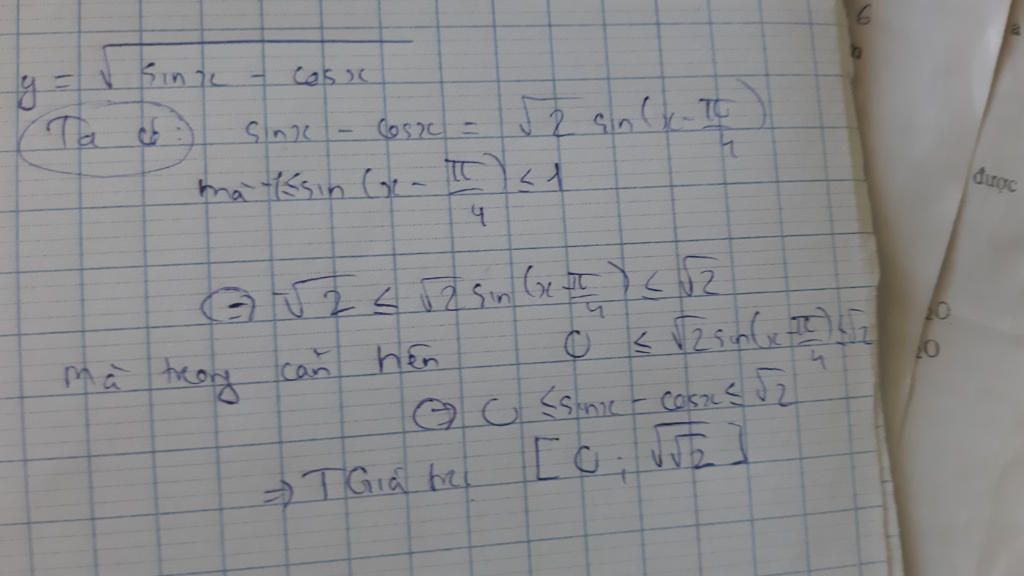 y = √(sinx - cosx)
Ta có: sinx - cosx = √2 sin(x - π/4)
mà -1 ≤ sin(x - π/4) ≤ 1
⇔ -√2 ≤ √2 sin(x - π/4) ≤ √2
mà trong căn nên 0 ≤ √2 sin(x - π/4) ≤ √2
⇔ 0 ≤ sinx - cosx ≤ √2
⇒ TGiá trị [0; √√2]
được
20
20
6